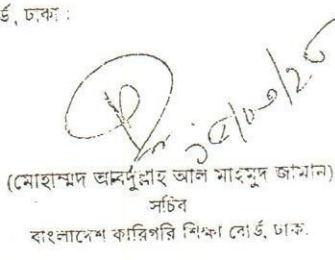 র্ড, ঢাকা :
(মোহাম্মদ আবদুল্লাহ আল মাহমুদ জামান)
সচিব
বাংলাদেশ কারিগরি শিক্ষা বোর্ড, ঢাকা.